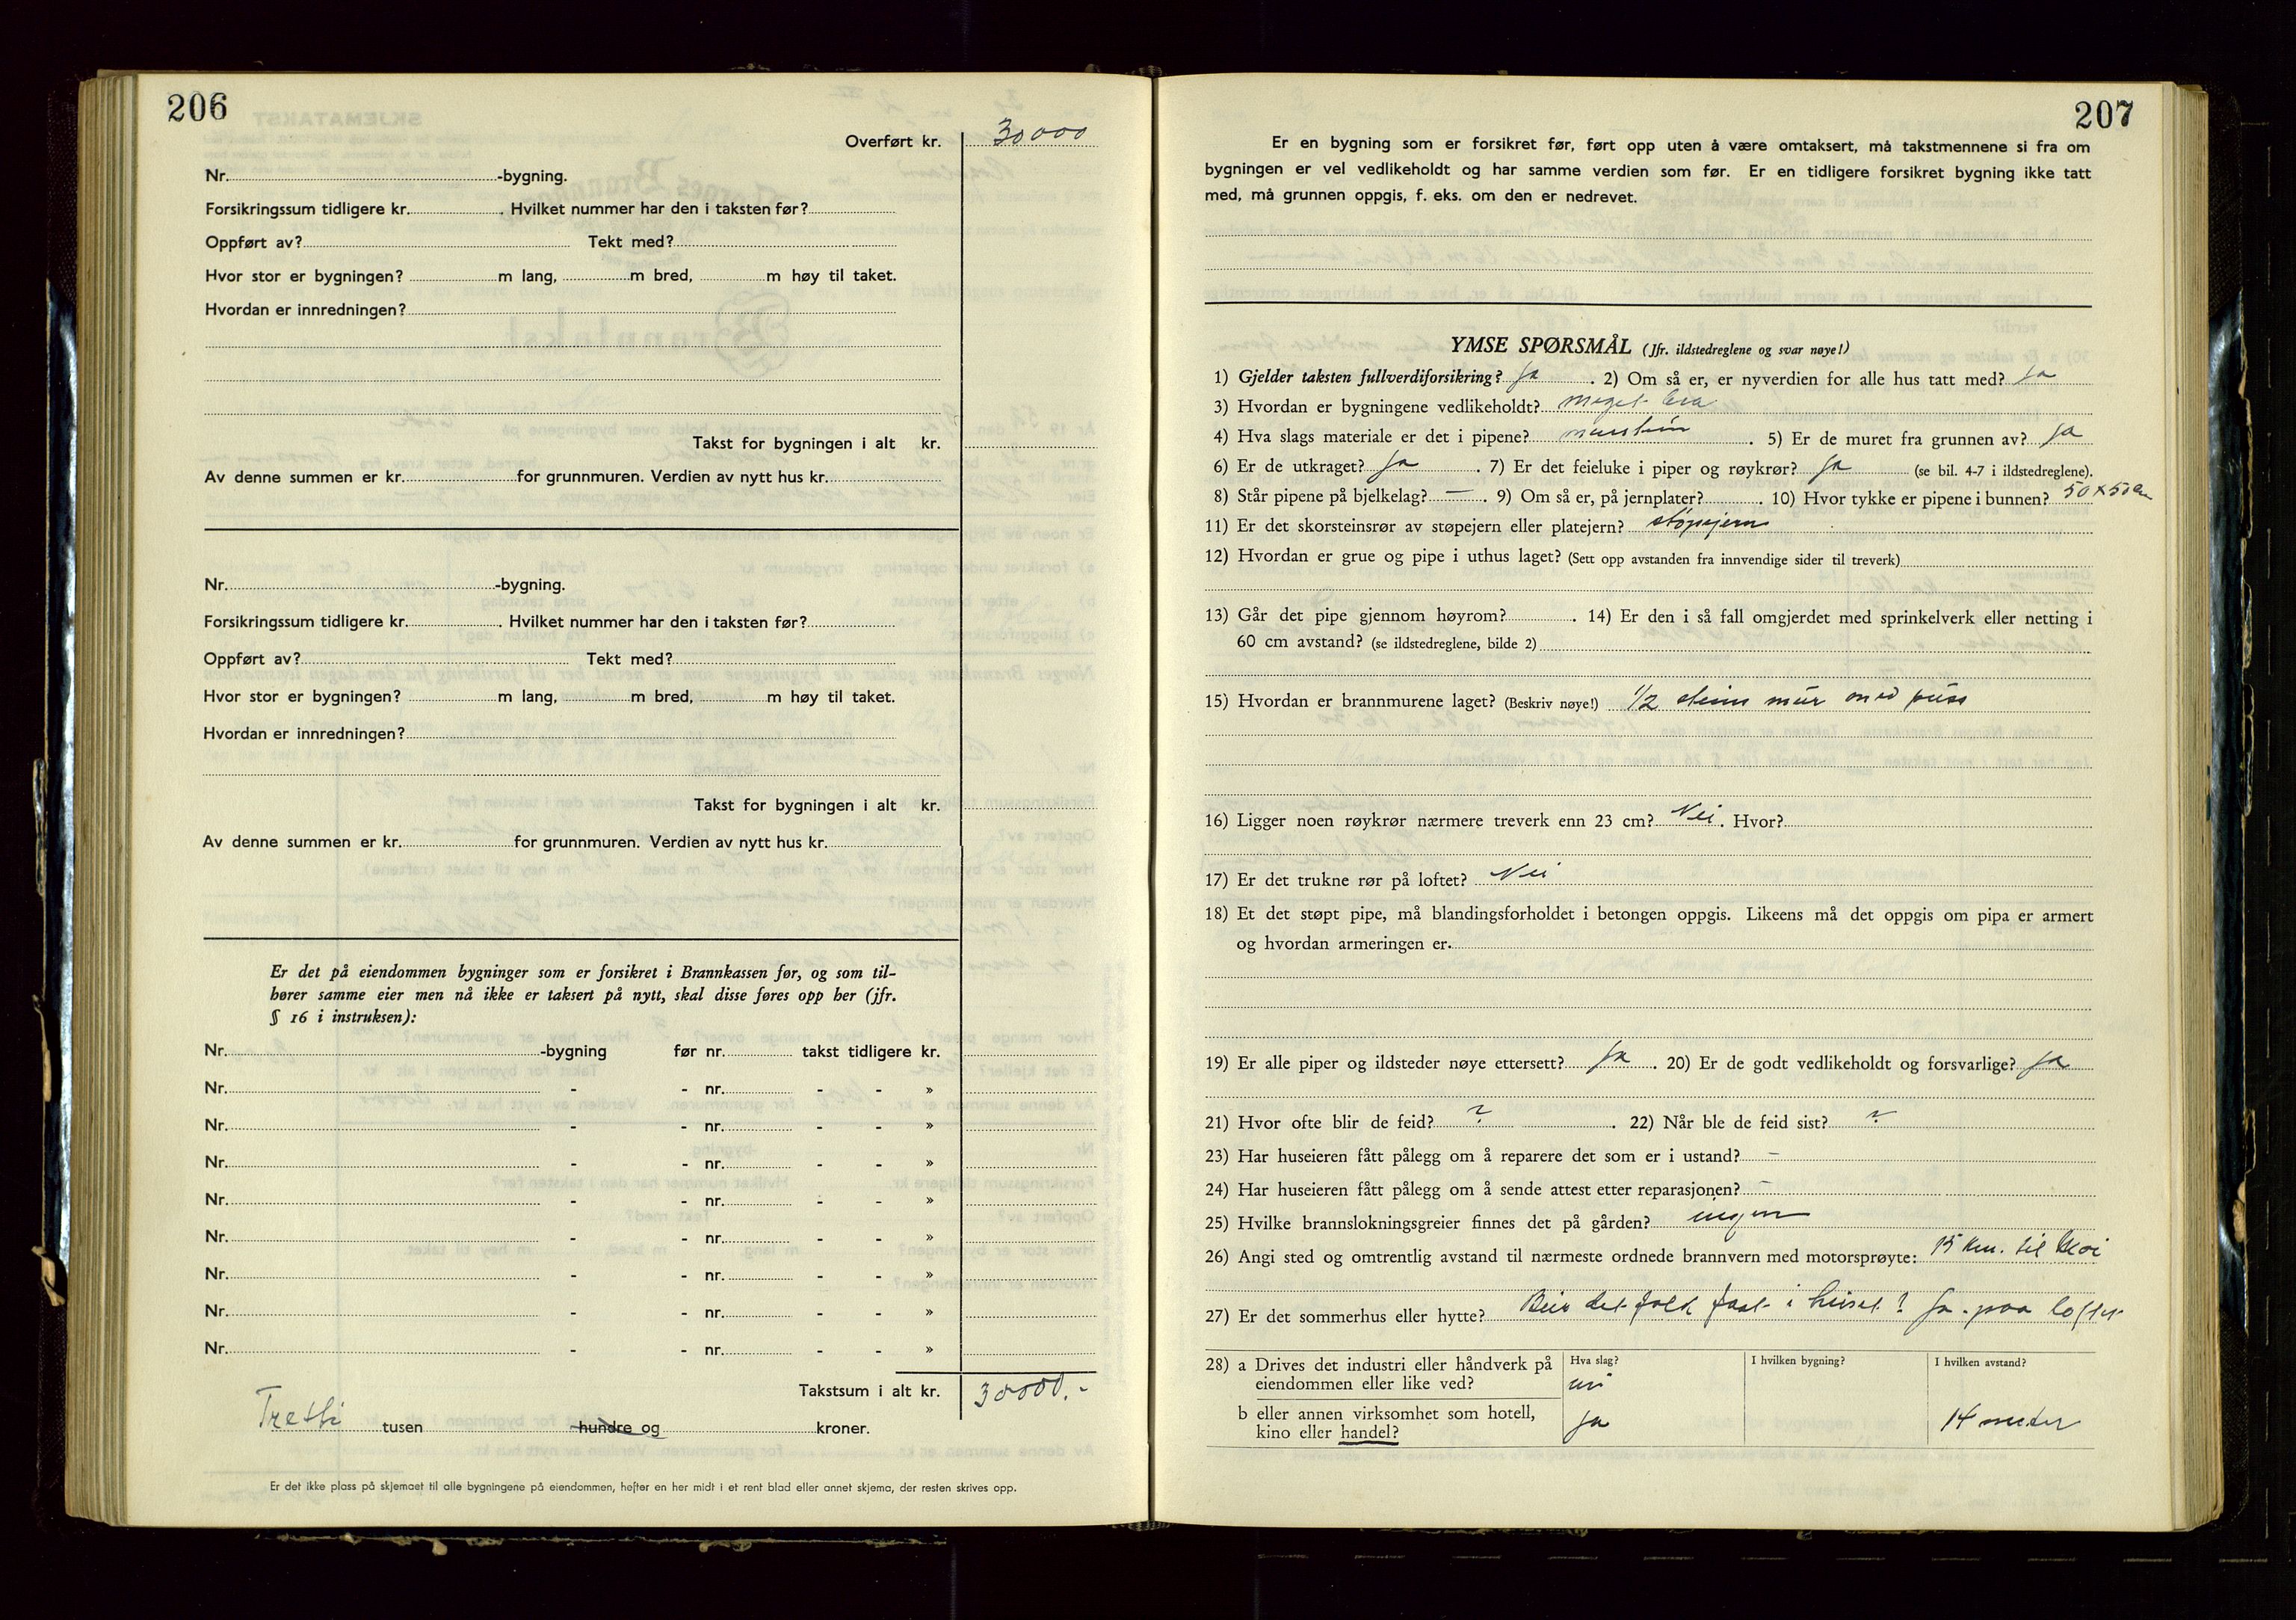 206
Overført kr. 30000
Nr. -bygning.
Forsikringssum tidligere kr. . Hvilket nummer har den i taksten før?
Oppført av? Tekt med?
Hvor stor er bygningen? m lang, m bred, m høy til taket.
Hvordan er innredningen?
Takst for bygningen i alt kr.
Av denne summen er kr. for grunnmuren. Verdien av nytt hus kr.
Nr. -bygning.
Forsikringssum tidligere kr. . Hvilket nummer har den i taksten før?
Oppført av? Tekt med?
Hvor stor er bygningen? m lang, m bred, m høy til taket.
Hvordan er innredningen?
Takst for bygningen i alt kr.
Av denne summen er kr. for grunnmuren. Verdien av nytt hus kr.
Er det på eiendommen bygninger som er forsikret i Brannkassen før, og som til-
hører samme eier men nå ikke er taksert på nytt, skal disse føres opp her (jfr.
§ 16 i instruksen):
Nr. -bygning før nr. takst tidligere kr.
Nr. - - nr. - - »
Nr. - - nr. - - »
Nr. - - nr. - - »
Nr. - - nr. - - »
Nr. - - nr. - - »
Nr. - - nr. - - »
Nr. - - nr. - - »
Nr. - - nr. - - »
Takstsum i alt kr. 30000.-
Tretti tusen hundre og kroner.
Er det ikke plass på skjemaet til alle bygningene på eiendommen, hefter en her midt i et rent blad eller annet skjema, der resten skrives opp.
207
Er en bygning som er forsikret før, ført opp uten å være omtaksert, må takstmennene si fra om
bygningen er vel vedlikeholdt og har samme verdien som før. Er en tidligere forsikret bygning ikke tatt
med, må grunnen oppgis, f. eks. om den er nedrevet.
YMSE SPØRSMÅL (Jfr. ildstedreglene og svar nøye!)
1) Gjelder taksten fullverdiforsikring? Ja . 2) Om så er, er nyverdien for alle hus tatt med? Ja
3) Hvordan er bygningene vedlikeholdt? meget bra
4) Hva slags materiale er det i pipene? murstein . 5) Er de muret fra grunnen av? Ja
6) Er de utkraget? Ja . 7) Er det feieluke i piper og røykrør? Ja (se bil. 4-7 i ildstedreglene).
8) Står pipene på bjelkelag? — . 9) Om så er, på jernplater? . 10) Hvor tykke er pipene i bunnen? 50 x 50 cm
11) Er det skorsteinsrør av støpejern eller platejern? støpejern
12) Hvordan er grue og pipe i uthus laget? (Sett opp avstanden fra innvendige sider til treverk)
13) Går det pipe gjennom høyrom? . 14) Er den i så fall omgjerdet med sprinkelverk eller netting i
60 cm avstand? (se ildstedreglene, bilde 2)
15) Hvordan er brannmurene laget? (Beskriv nøye!) 1/2 steins mur med puss
16) Ligger noen røykrør nærmere treverk enn 23 cm? Nei . Hvor?
17) Er det trukne rør på loftet? Nei
18) Et det støpt pipe, må blandingsforholdet i betongen oppgis. Likeens må det oppgis om pipa er armert
og hvordan armeringen er.
19) Er alle piper og ildsteder nøye ettersett? Ja . 20) Er de godt vedlikeholdt og forsvarlige? Ja
21) Hvor ofte blir de feid? ? . 22) Når ble de feid sist? ?
23) Har huseieren fått pålegg om å reparere det som er i ustand? –
24) Har huseieren fått pålegg om å sende attest etter reparasjonen? –
25) Hvilke brannslokningsgreier finnes det på gården? ingen
26) Angi sted og omtrentlig avstand til nærmeste ordnede brannvern med motorsprøyte: 15 km. til
27) Er det sommerhus eller hytte? Bur det folk fast i huset? Ja - paa loftet
28) a Drives det industri eller håndverk på Hva slag? I hvilken bygning? I hvilken avstand?
eiendommen eller like ved? nei
b eller annen virksomhet som hotell, Ja 14 meter
kino eller handel?